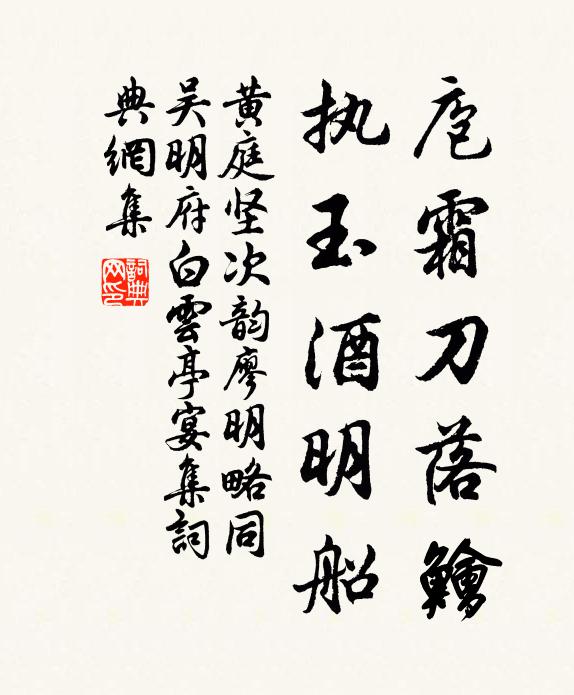 庖霜刀落鱠
执玉酒明船
黄庭坚次韵廖明略同
吴明府白雲亭宴集詞
典網集
詞典网印